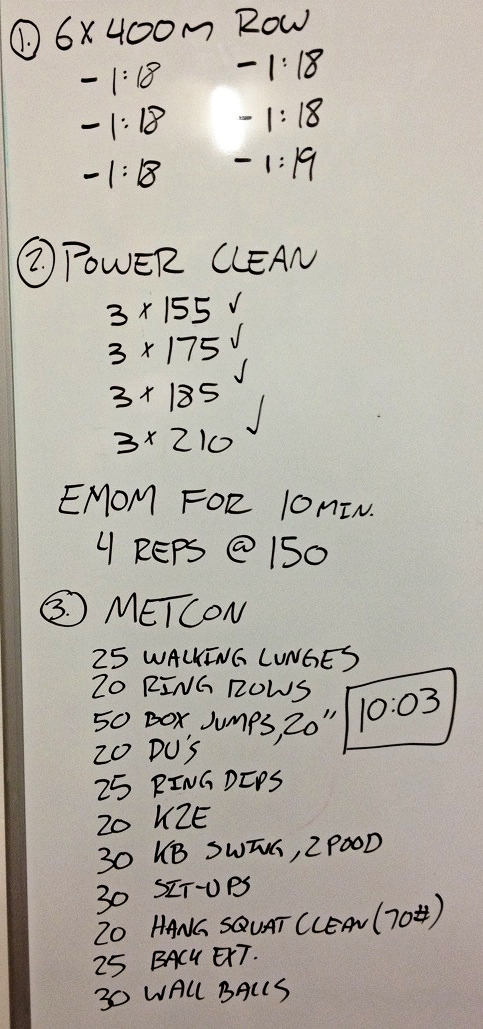 1. 6 x 400m ROW
- 1:18 - 1:18
- 1:18 - 1:18
- 1:18 - 1:19
2. POWER CLEAN
3 x 155 ✓
3 x 175 ✓
3 x 185 ✓
3 x 210 ✓
EMOM FOR 10 MIN.
4 REPS @ 150
3. METCON
25 WALKING LUNGES
20 RING ROWS
50 BOX JUMPS, 20" 10:03
20 DU'S
25 RING DIPS
20 K2E
30 KB SWING, 2 POOD
30 SIT-UPS
20 HANG SQUAT CLEAN (70#)
25 BACK EXT.
30 WALL BALLS